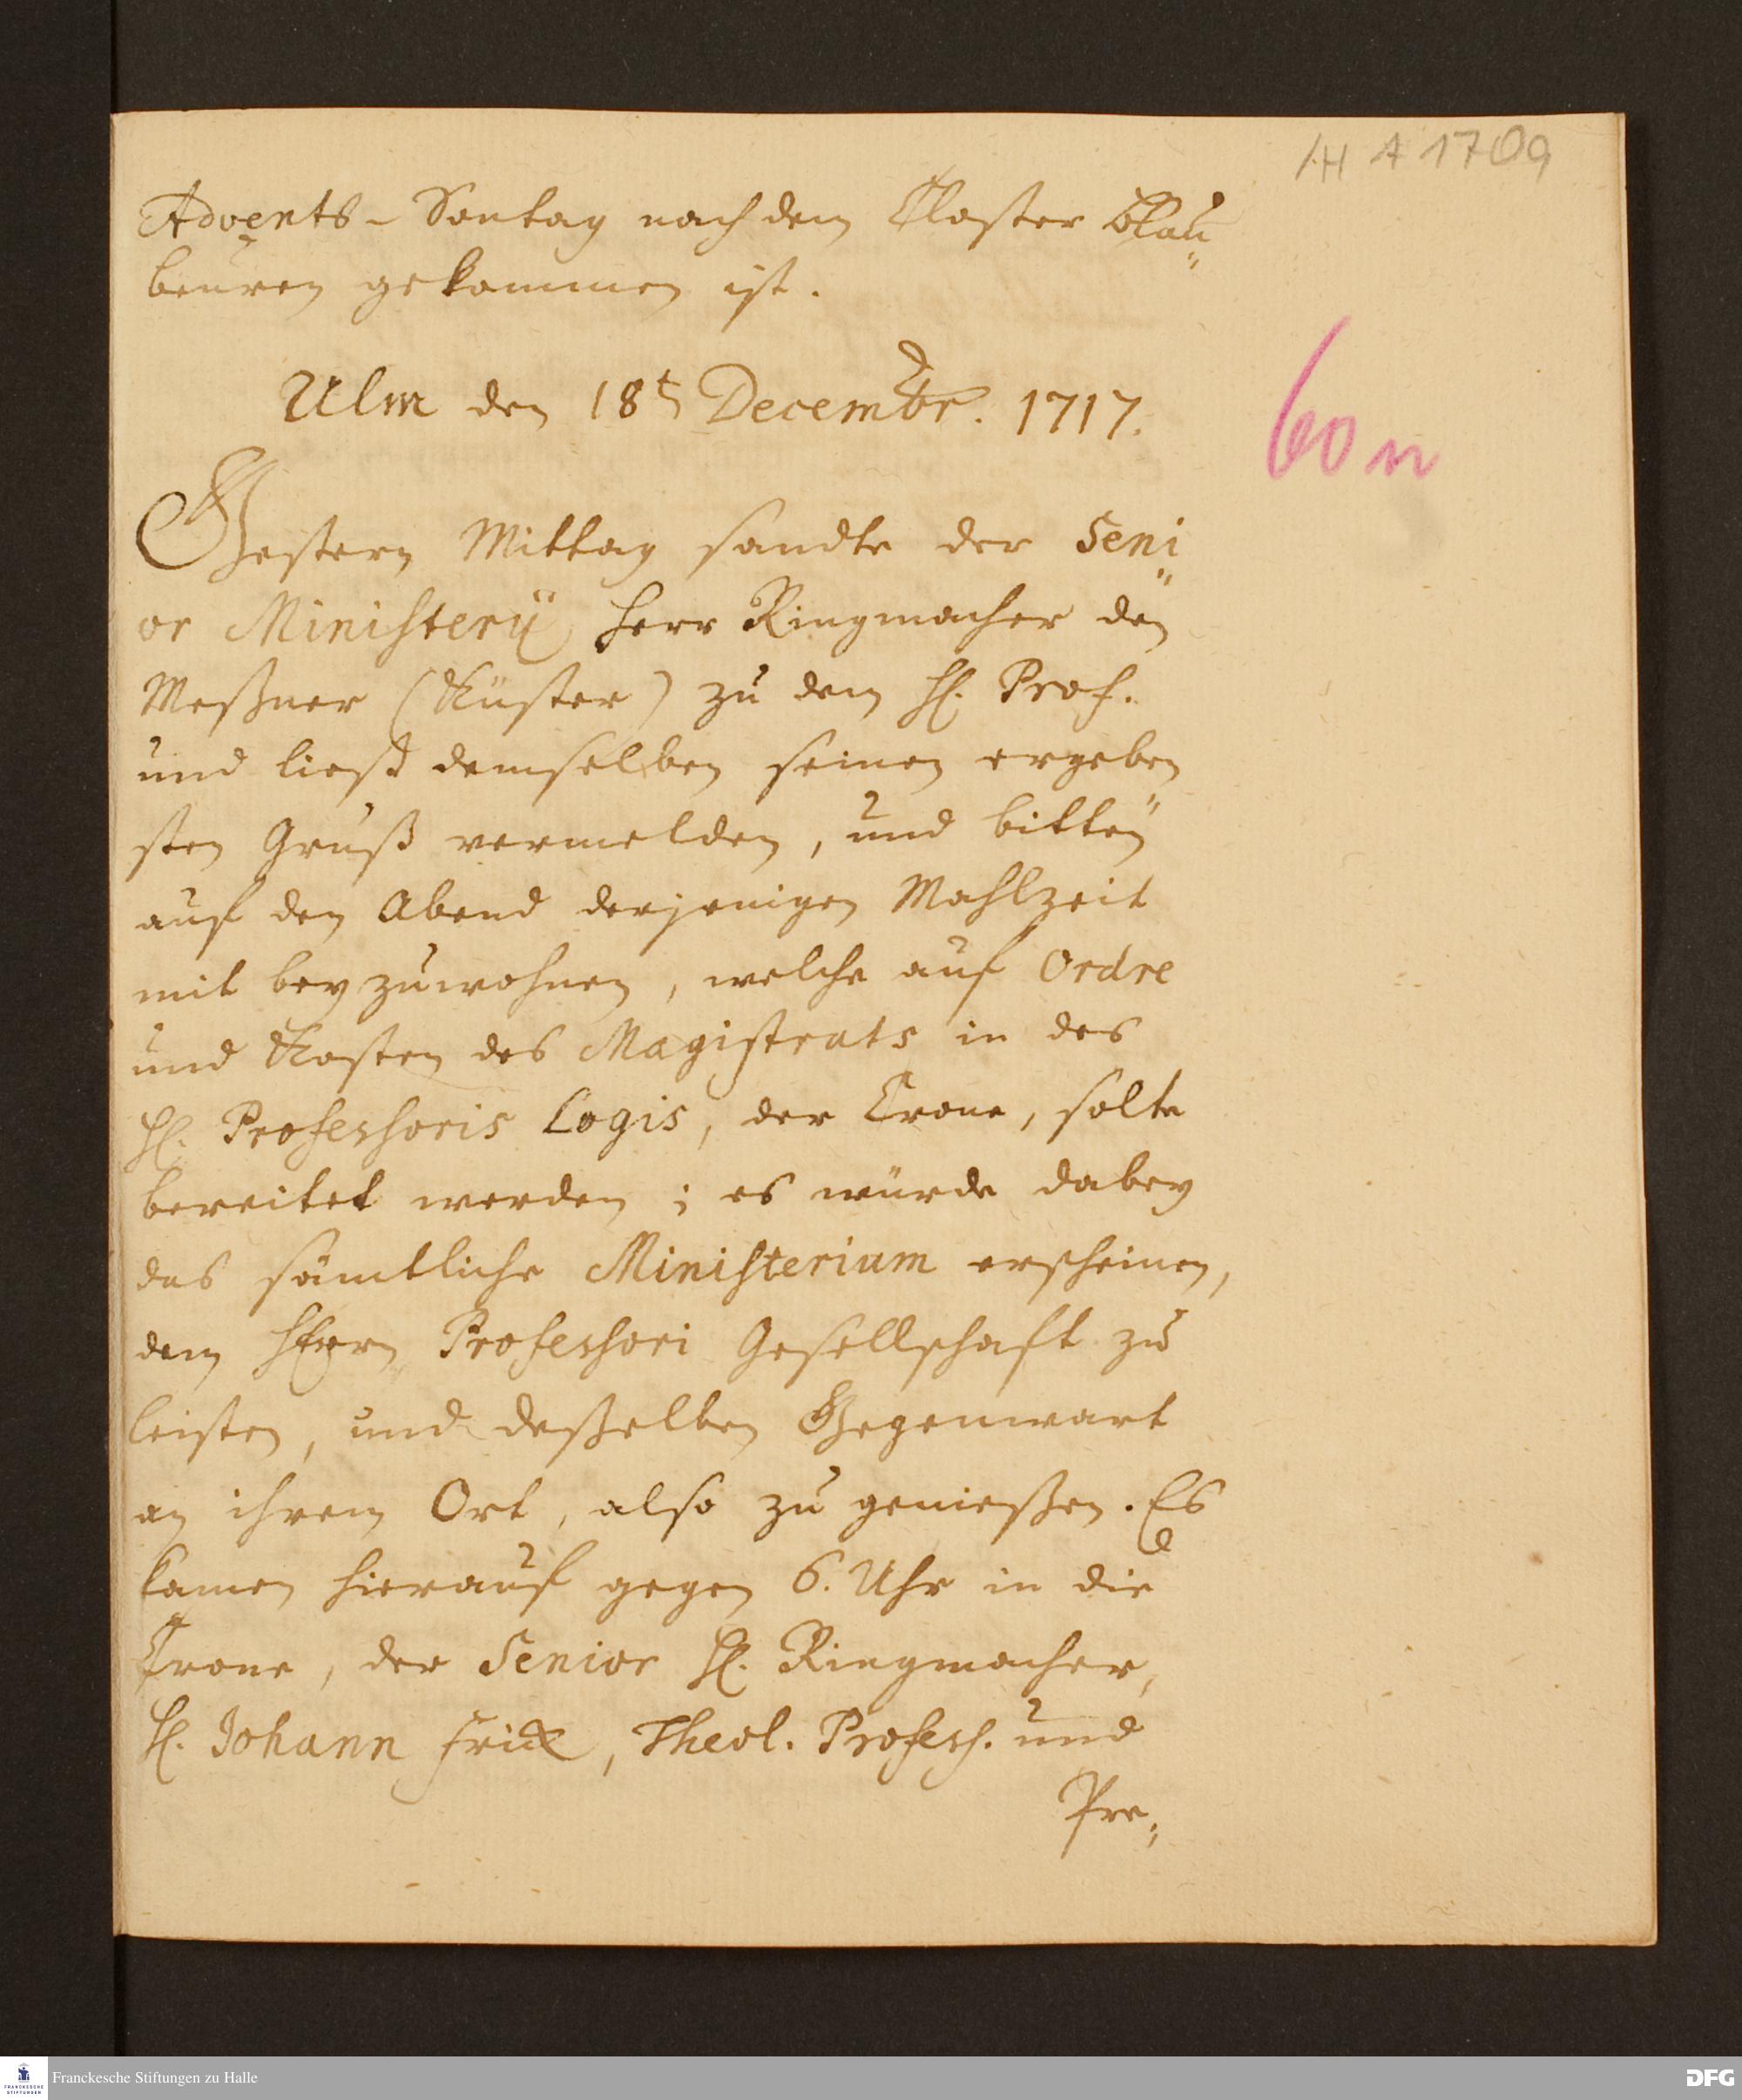 /H A 170g
Advents-Sontag nach dem Closter Blau"
beuren gekommen ist.
60 n
Ulm den 18t Decembr. 1717.
Gestern Mittag sandte der Seni"
or Ministerii Herr Ringmacher den
Meßner (Küster) zu dem H. Prof.
und ließ demselben seinen ergeben"
sten Gruß vermelden, und bitten
auf den Abend derjenigen Mahlzeit
mit beyzuwohnen, welche auf Ordre
und Kosten des Magistrats in des
H. Professoris Logis, der Crone, solte
bereitet werden; es würde dabey
das sämtliche Ministerium erscheinen,
dem Herrn Professori Gesellschaft zu
leisten, und deßelben Gegenwart
an ihrem Ort, also zu genießen. Es
kamen hierauf gegen 6. Uhr in die
Crone, der Senior H. Ringmacher,
H. Johann Frick, Theol. Profess. und
Pre;
Franckesche Stiftungen zu Halle
DFG